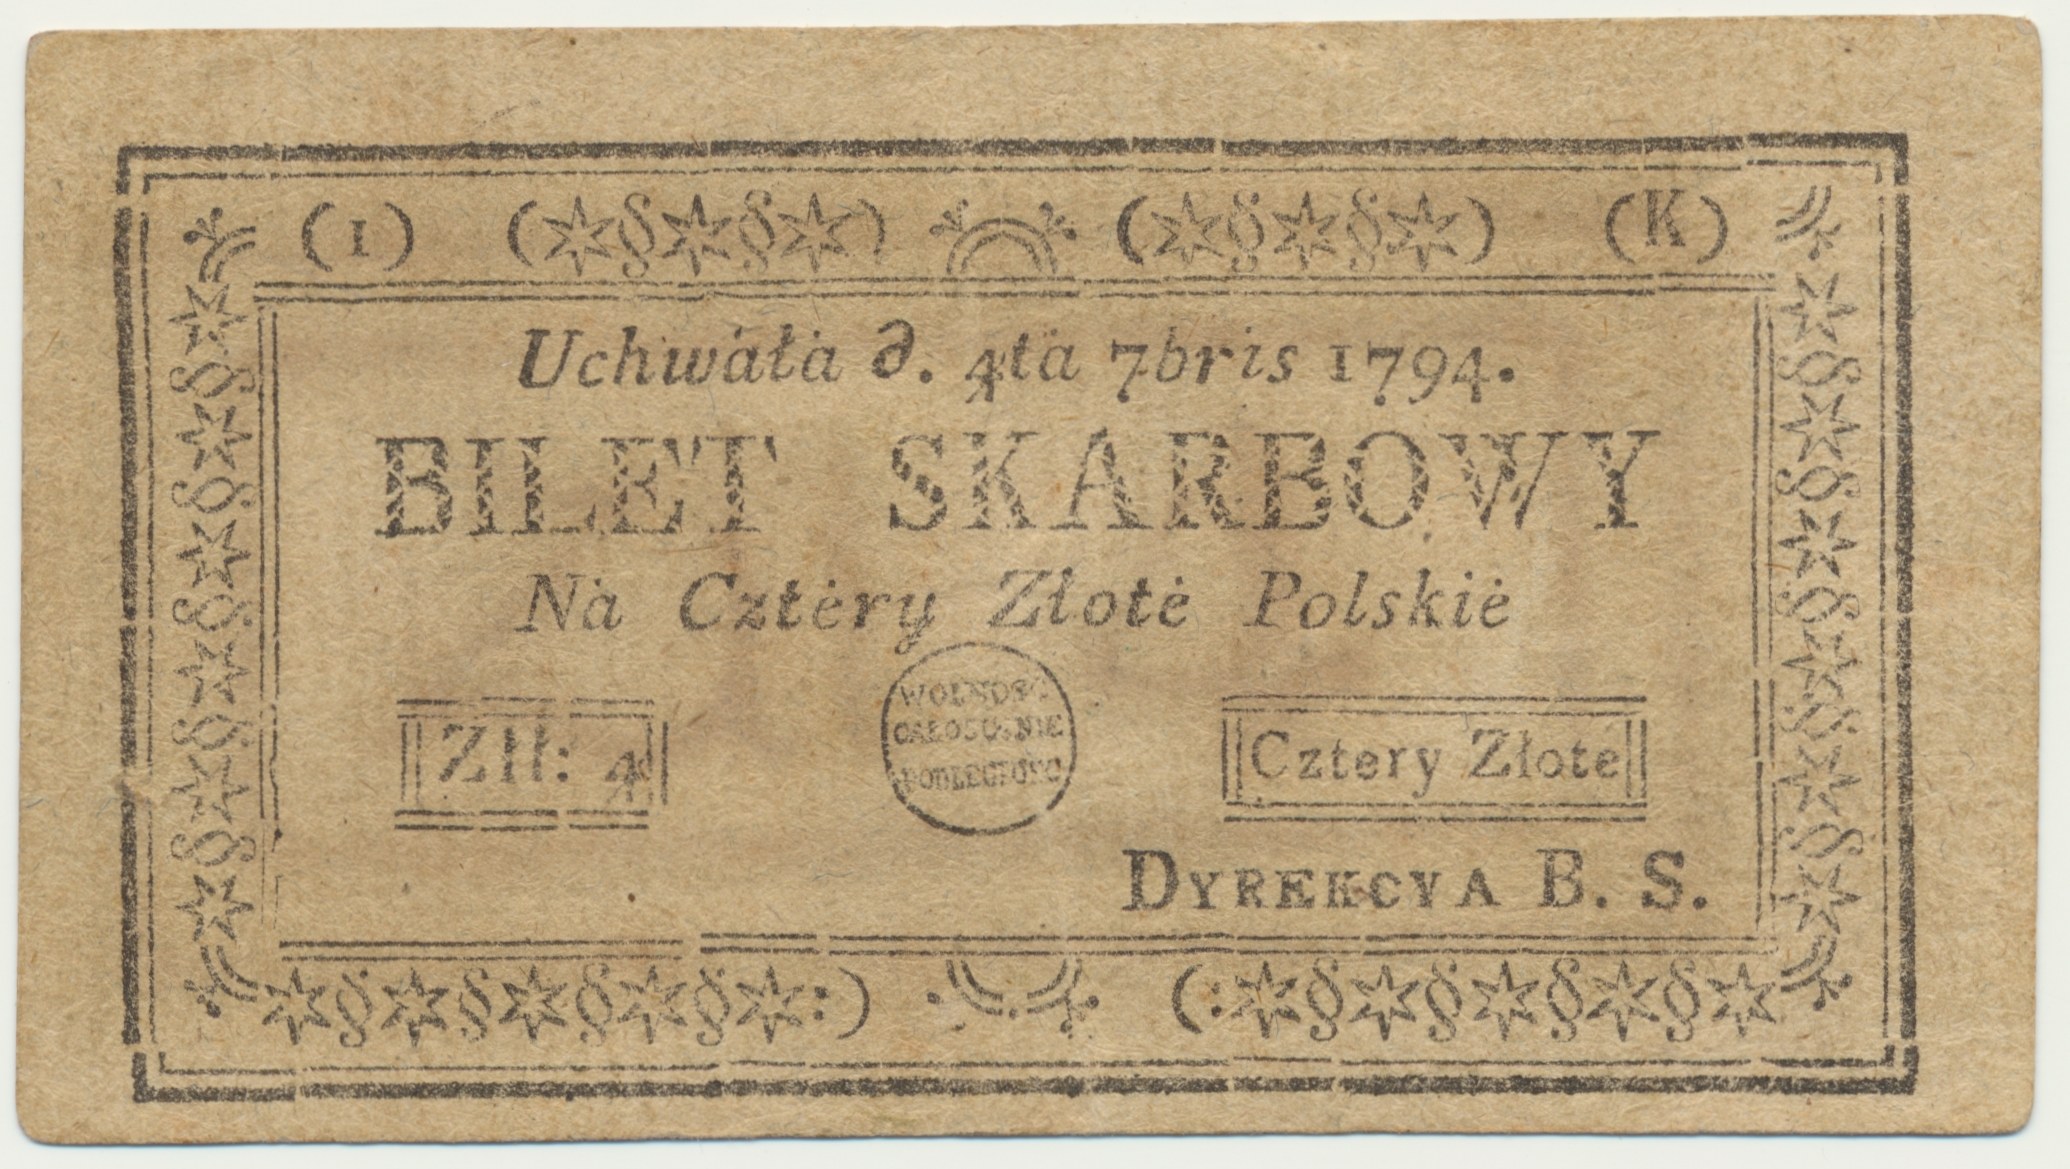 (1) (K)
Uchwała d. 4ta 7bris 1794.
BILET SKARBOWY
Na Cztery Złote Polskie
Złł: 4
WOLNOSC
CAŁOSC. NIE
PODLEGŁOSC
Cztery Złote
DYREKCYA B. S.